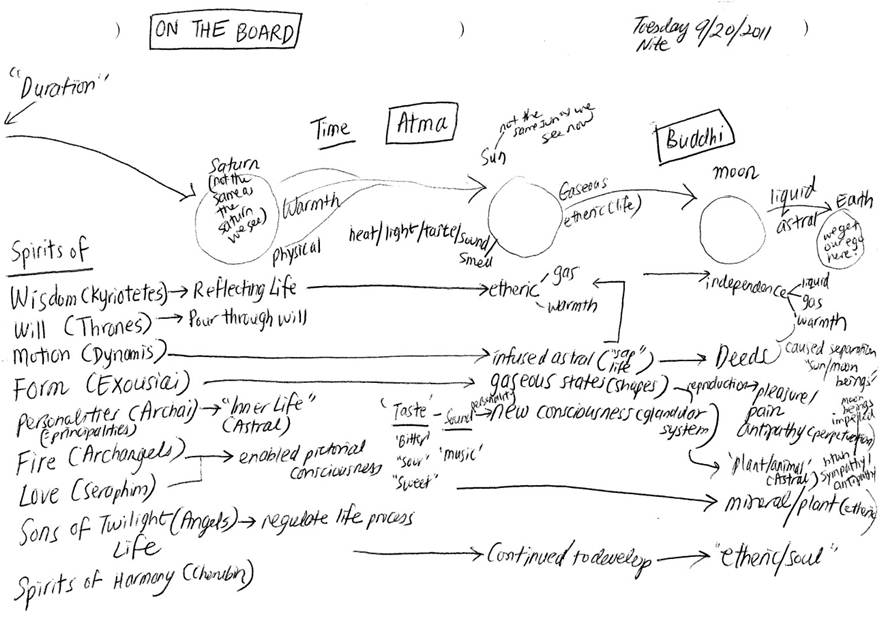 ON THE BOARD
Tuesday 9/20/2011
Nite
"Duration"
Time
Atma
Sun
not the
same sun as we
see now
Buddhi
Saturn
(not the
same as
the
saturn
we see)
Warmth
physical
heat/light/taste/sound/
smell
Gaseous
etheric (life)
moon
liquid
astral
Earth
we get
our ego
here!
Spirits of
Wisdom (Kyriotetes) → Reflecting Life → etheric gas
warmth
independence
liquid
gas
warmth
Will (Thrones) → Pour through will
Motion (Dynamis) → infused astral ("sap" life) → Deeds
caused separation
"sun/moon
beings"
Form (Exousiai) → gaseous states (shapes) → reproduction → pleasure/
pain
antipathy (perpetuation)
moon
beings
Personalities (Archai) → "Inner Life"
(principalities) (Astral)
'Taste' - Sound → new consciousness (glandular
personality
system)
'Bitter'
"Sour" 'music'
"Sweet"
'plant/animal'
(Astral)
sympathy/
antipathy
Fire (Archangels) → enabled pictorial
consciousness
Love (Seraphim)
mineral/plant (etheric)
Sons of Twilight (Angels) → regulate life process
Life
Continued to develop → "etheric/soul"
Spirits of Harmony (Cherubin)